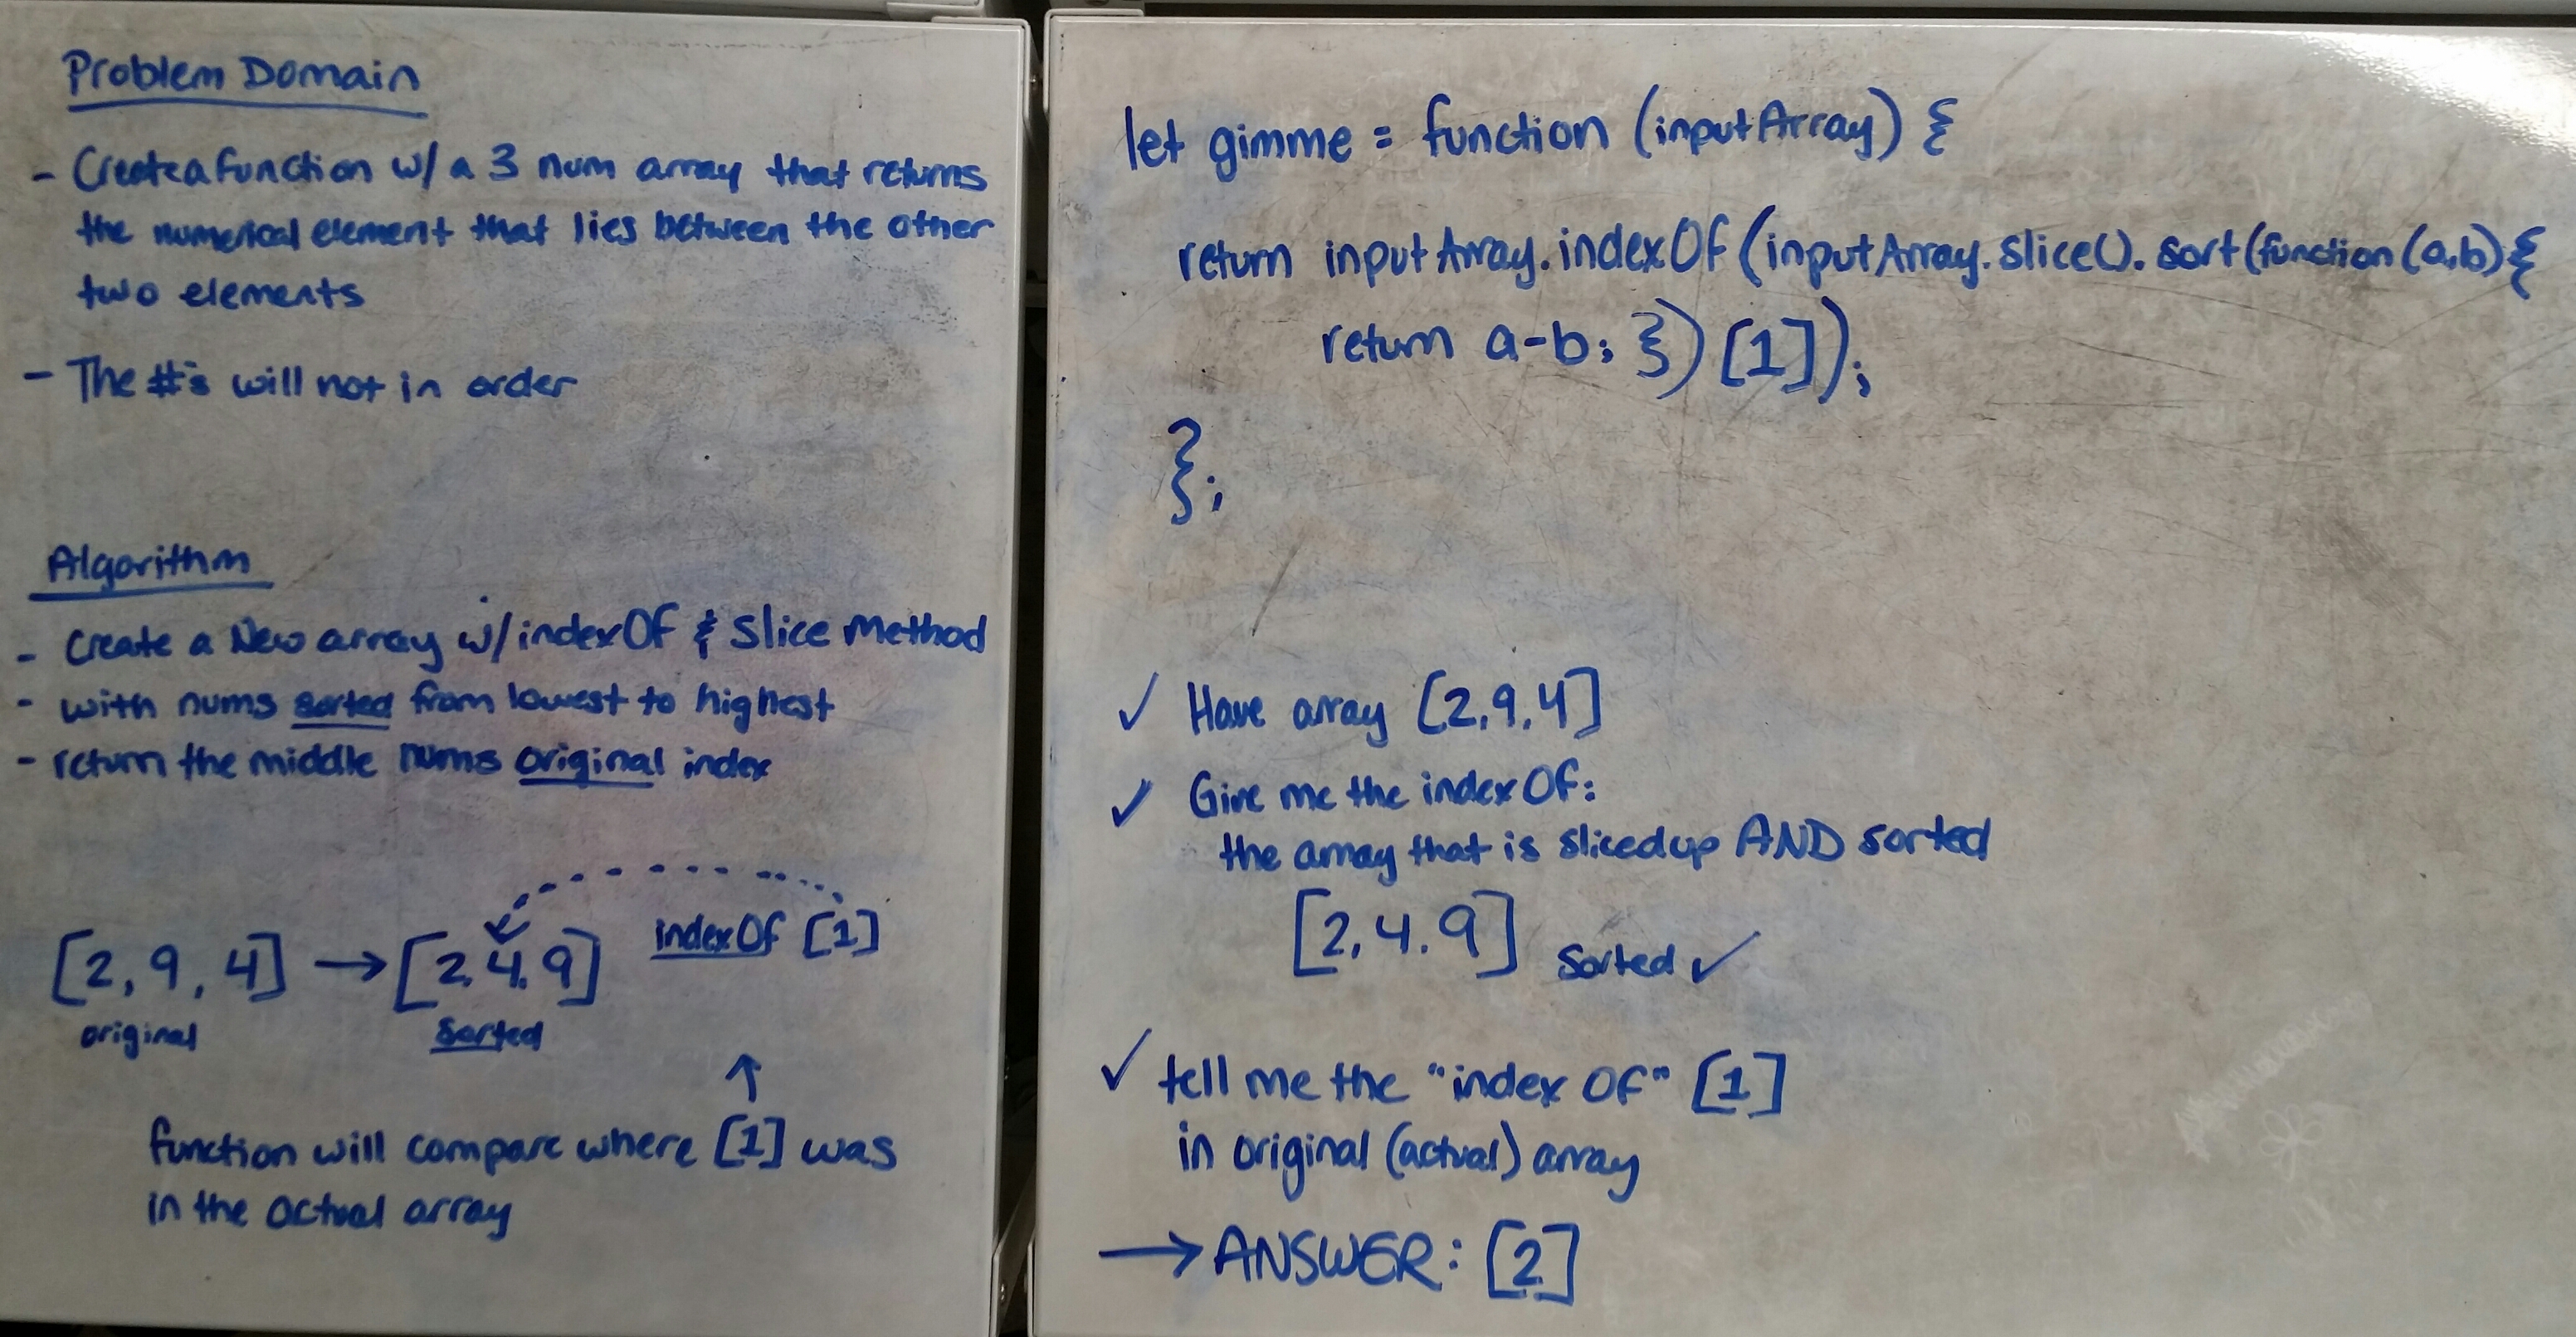 Problem Domain
- Create a function w/ a 3 num array that returns
the numerical element that lies between the other
two elements
- The #'s will not in order
Algorithm
- Create a New array w/ indexOf & Slice Method
- with nums sorted from lowest to highest
- return the middle nums original index
indexOf [1]
[2, 9, 4] → [2, 4, 9]
original sorted
↑
function will compare where [1] was
in the actual array
let gimme = function (inputArray) {
return inputArray.indexOf(inputArray.slice().sort(function(a,b){
return a-b; })[1]);
};
✓ Have array [2,9,4]
✓ Give me the indexOf:
the array that is sliced up AND sorted
[2,4,9] Sorted ✓
✓ tell me the "index Of" [1]
in original (actual) array
→ ANSWER: [2]